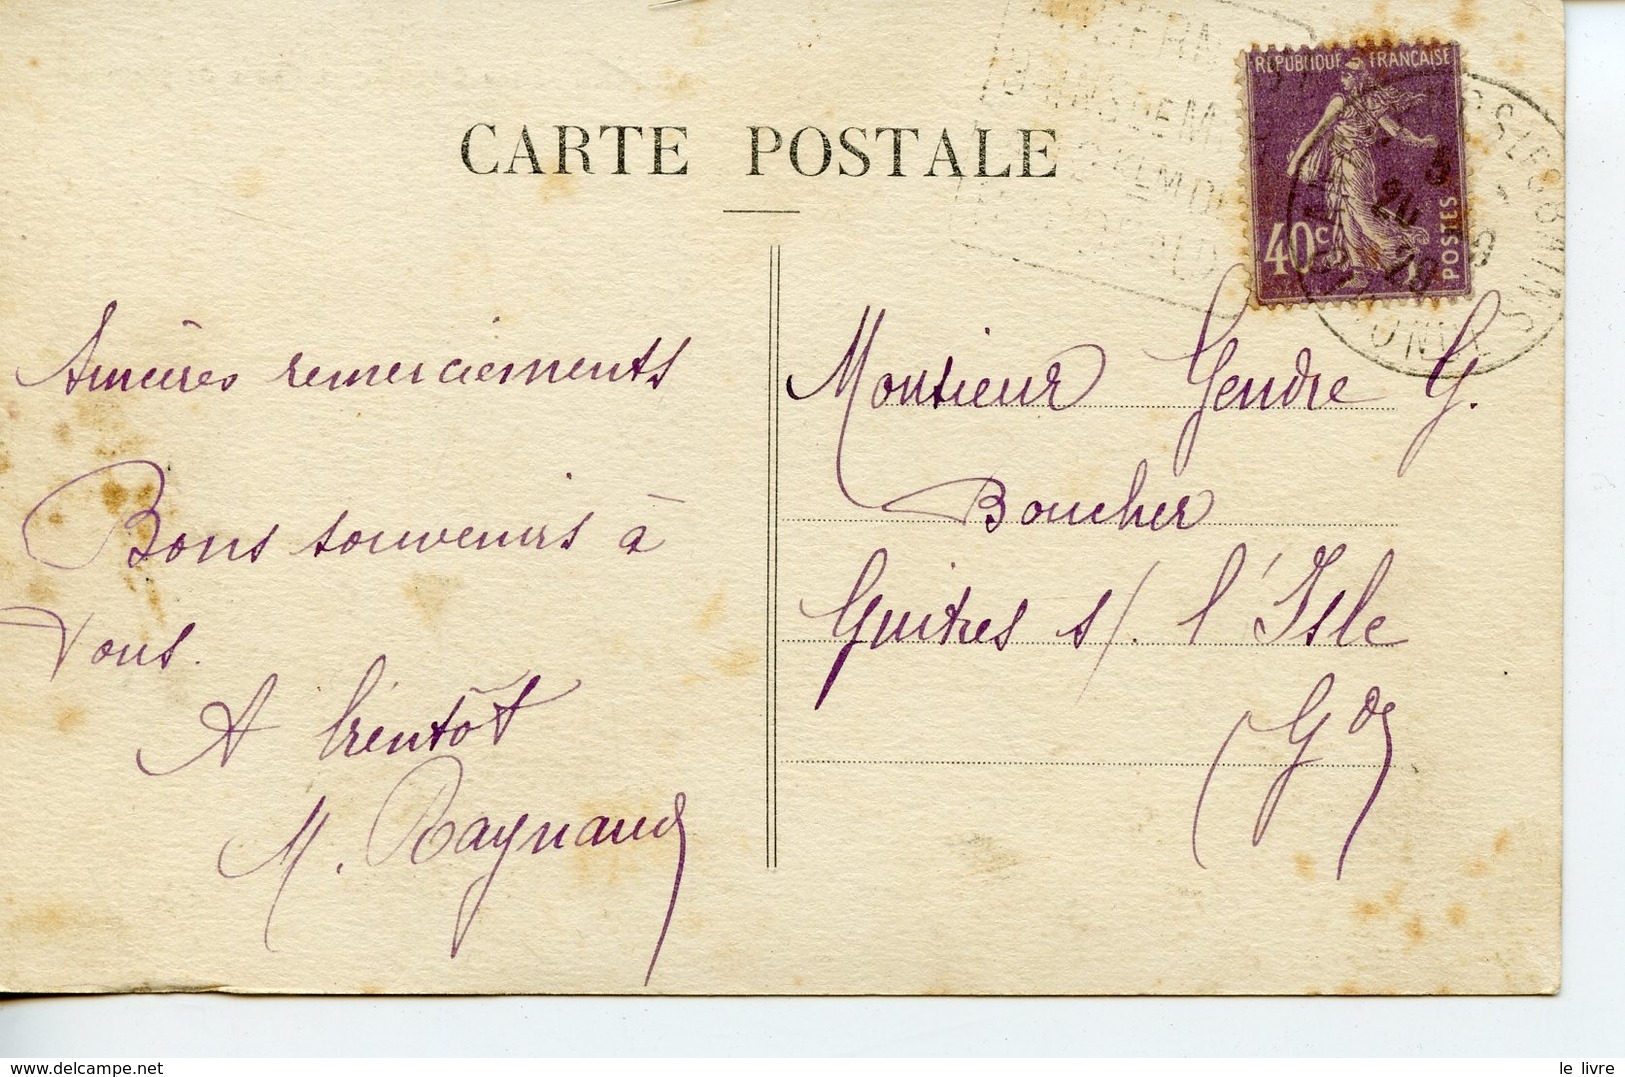 CARTE POSTALE
RÉPUBLIQUE FRANÇAISE
40c
POSTES
Sincères remerciements
Bons souvenirs à
vous.
A bientôt
M. Raynaud
Monsieur Gendre G.
Boucher
Guitres s/. l'Isle
(Gde)
le livre